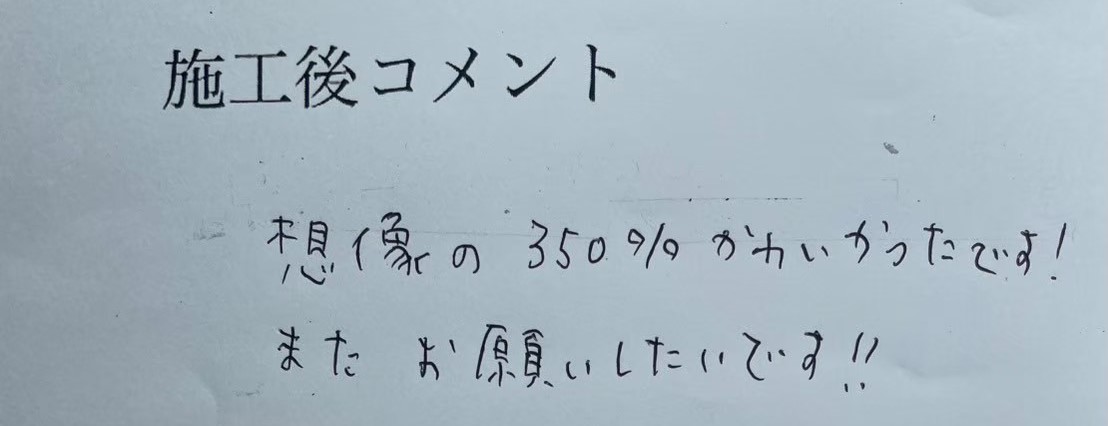 施工後コメント
想像の 350% かわいかったです!
また お願いしたいです!!